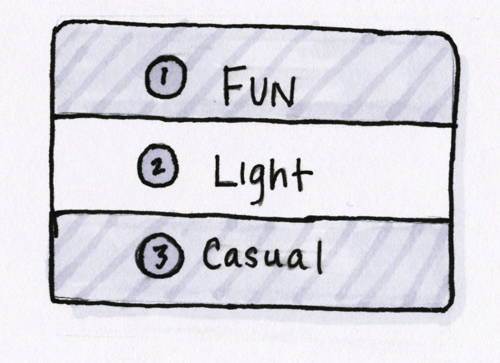 1 FUN
2 Light
3 Casual